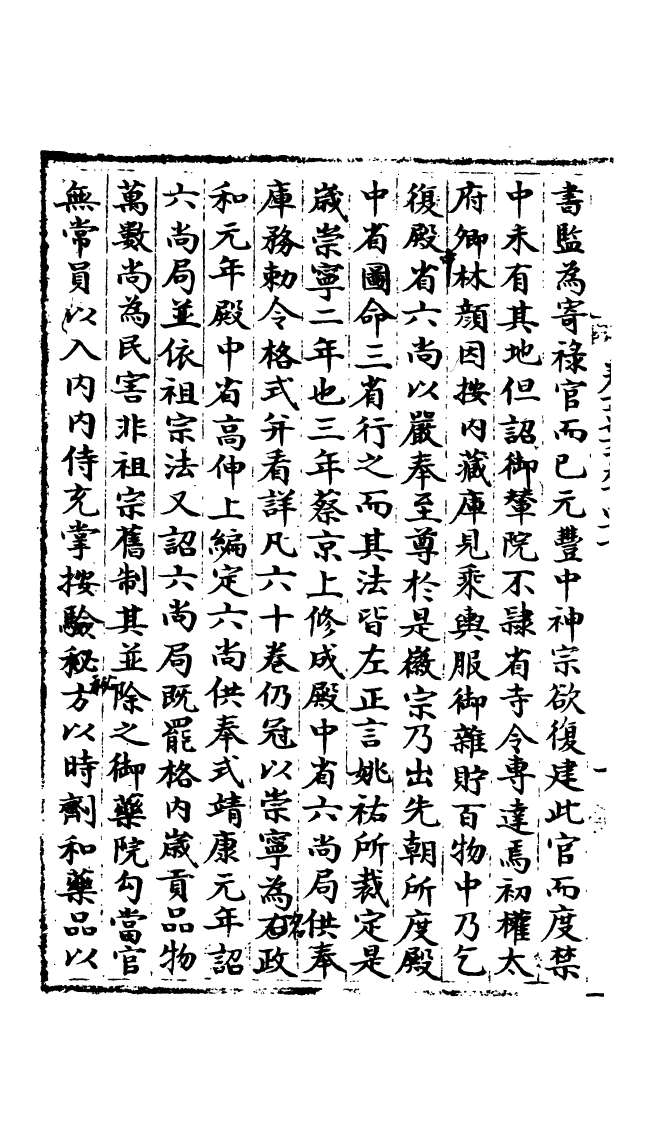 書監為寄祿官而已元豐中神宗欲復建此官而度禁
中未有其地但詔御輦院不隸省寺令專達焉初權太
府卿林顔因按內藏庫見乘輿服御雜貯百物中乃乞
復殿中省六尚以嚴奉至尊於是徽宗乃出先朝所度殿
中省圖命三省行之而其法皆左正言姚祐所裁定是
歲崇寧二年也三年蔡京上修成殿中省六尚局供奉
庫務勅令格式并看詳凡六十卷仍冠以崇寧為名政
和元年殿中省高伸上編定六尚供奉式靖康元年詔
六尚局並依祖宗法又詔六尚局既罷格內歲貢品物
萬數尚為民害非祖宗舊制其並除之御藥院勾當官
無常員以入內內侍充掌按驗秘方以時劑和藥品以